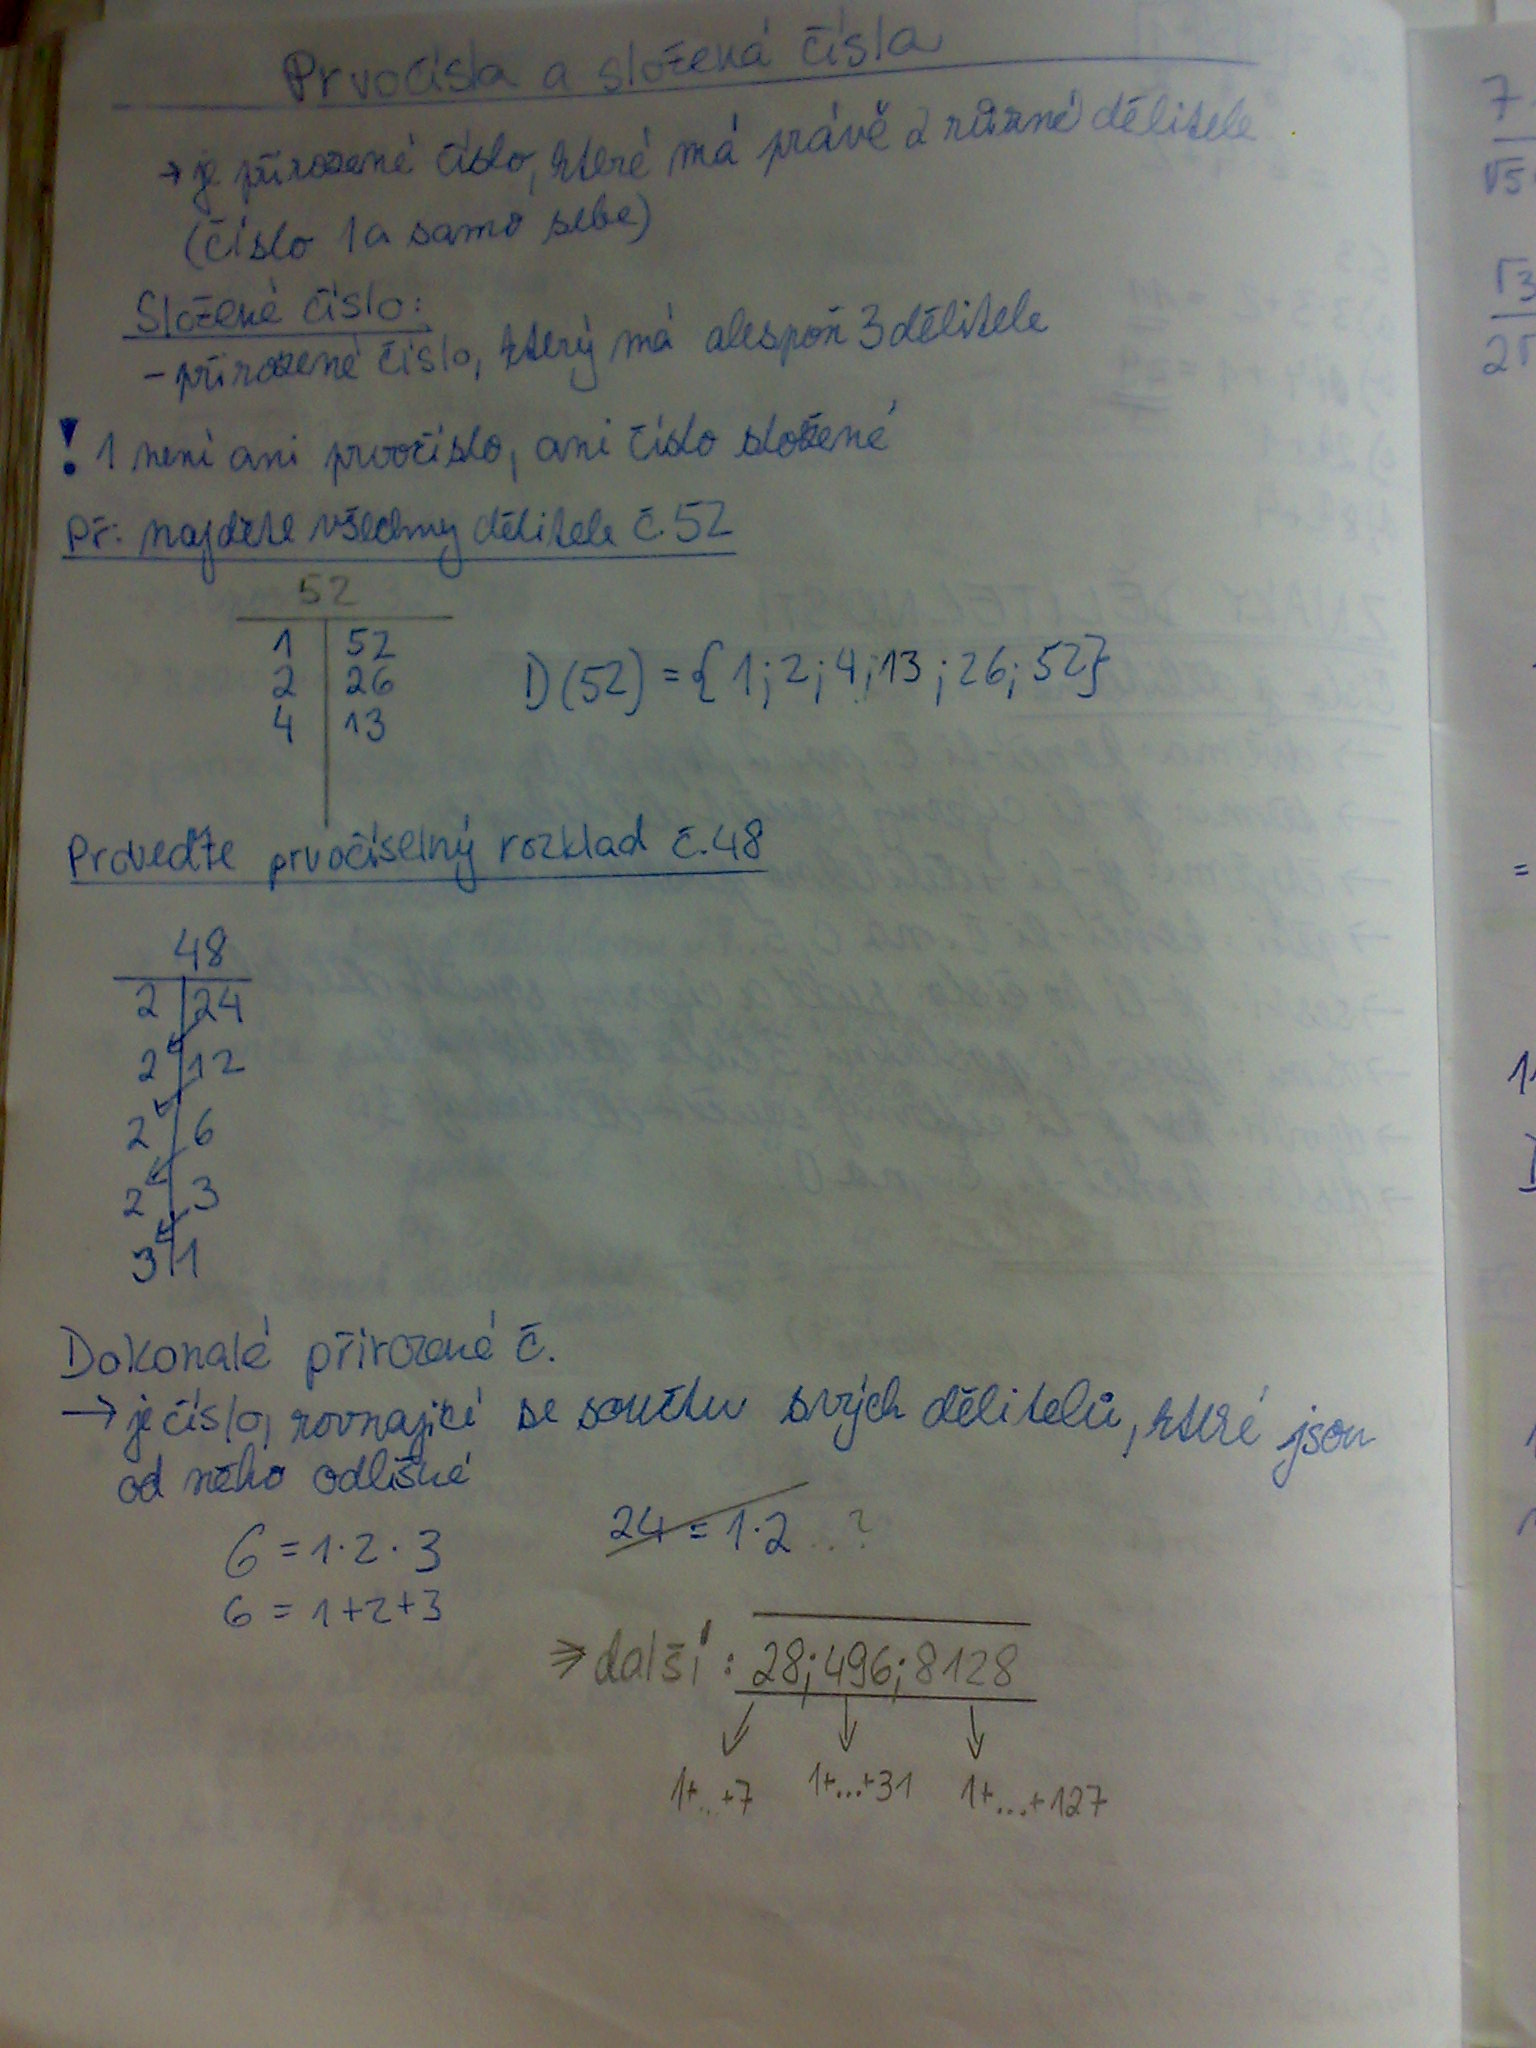 Prvočísla a složená čísla
→ je přirozené číslo, které má právě 2 různé dělitele
(číslo 1 a samo sebe)
Složené číslo:
- přirozené číslo, který má alespoň 3 dělitele
! 1 není ani prvočíslo, ani číslo složené
Př: najděte všechny dělitele č. 52
52
1 | 52
2 | 26
4 | 13
D(52) = {1; 2; 4; 13; 26; 52}
Proveďte prvočíselný rozklad č. 48
48
2 | 24
2 | 12
2 | 6
2 | 3
3 | 1
Dokonalé přirozené č.
→ je číslo, rovnající se součtu svých dělitelů, které jsou
od něho odlišné
6 = 1·2·3
6 = 1+2+3
24 = 1·2 ..?
⇒ další: 28; 496; 8128
1+...+7 1+...+31 1+...+127